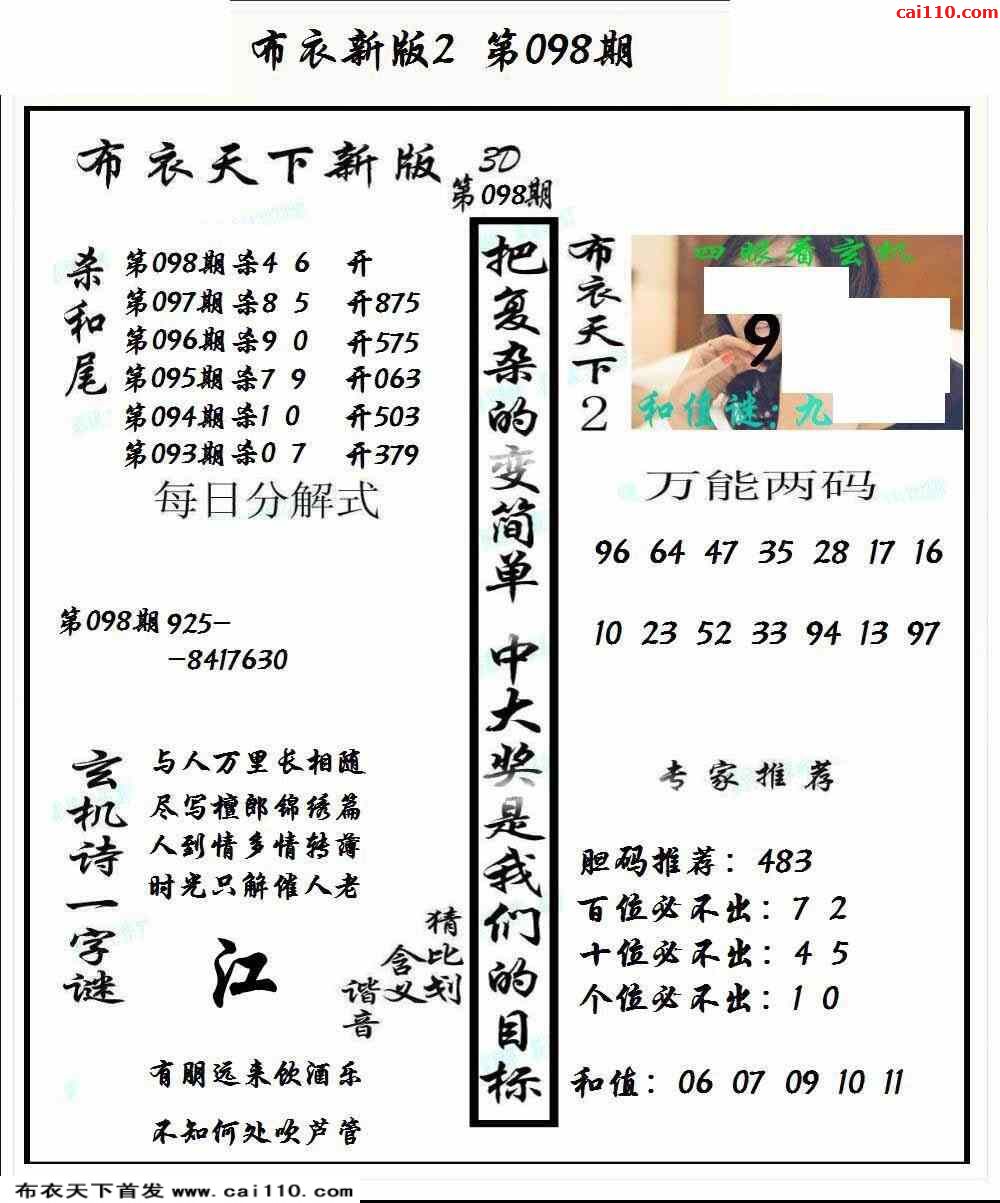 cai110.com
布衣新版2 第098期
布衣天下新版 3D
第098期
杀和尾
第098期杀4 6 开
第097期杀8 5 开875
第096期杀9 0 开575
第095期杀7 9 开063
第094期杀1 0 开503
第093期杀0 7 开379
每日分解式
第098期 925-
-8417630
玄机诗一字谜
与人万里长相随
尽写檀郎锦绣篇
人到情多情转薄
时光只解催人老
江
猜比划
含义
谐音
有朋远来饮酒乐
不知何处吹芦管
把复杂的变简单 中大奖是我们的目标
布衣天下2
四眼看玄机
9
和值谜:九
万能两码
96 64 47 35 28 17 16
10 23 52 33 94 13 97
专家推荐
胆码推荐：483
百位必不出：7 2
十位必不出：4 5
个位必不出：1 0
和值：06 07 09 10 11
布衣天下首发 www.cai110.com